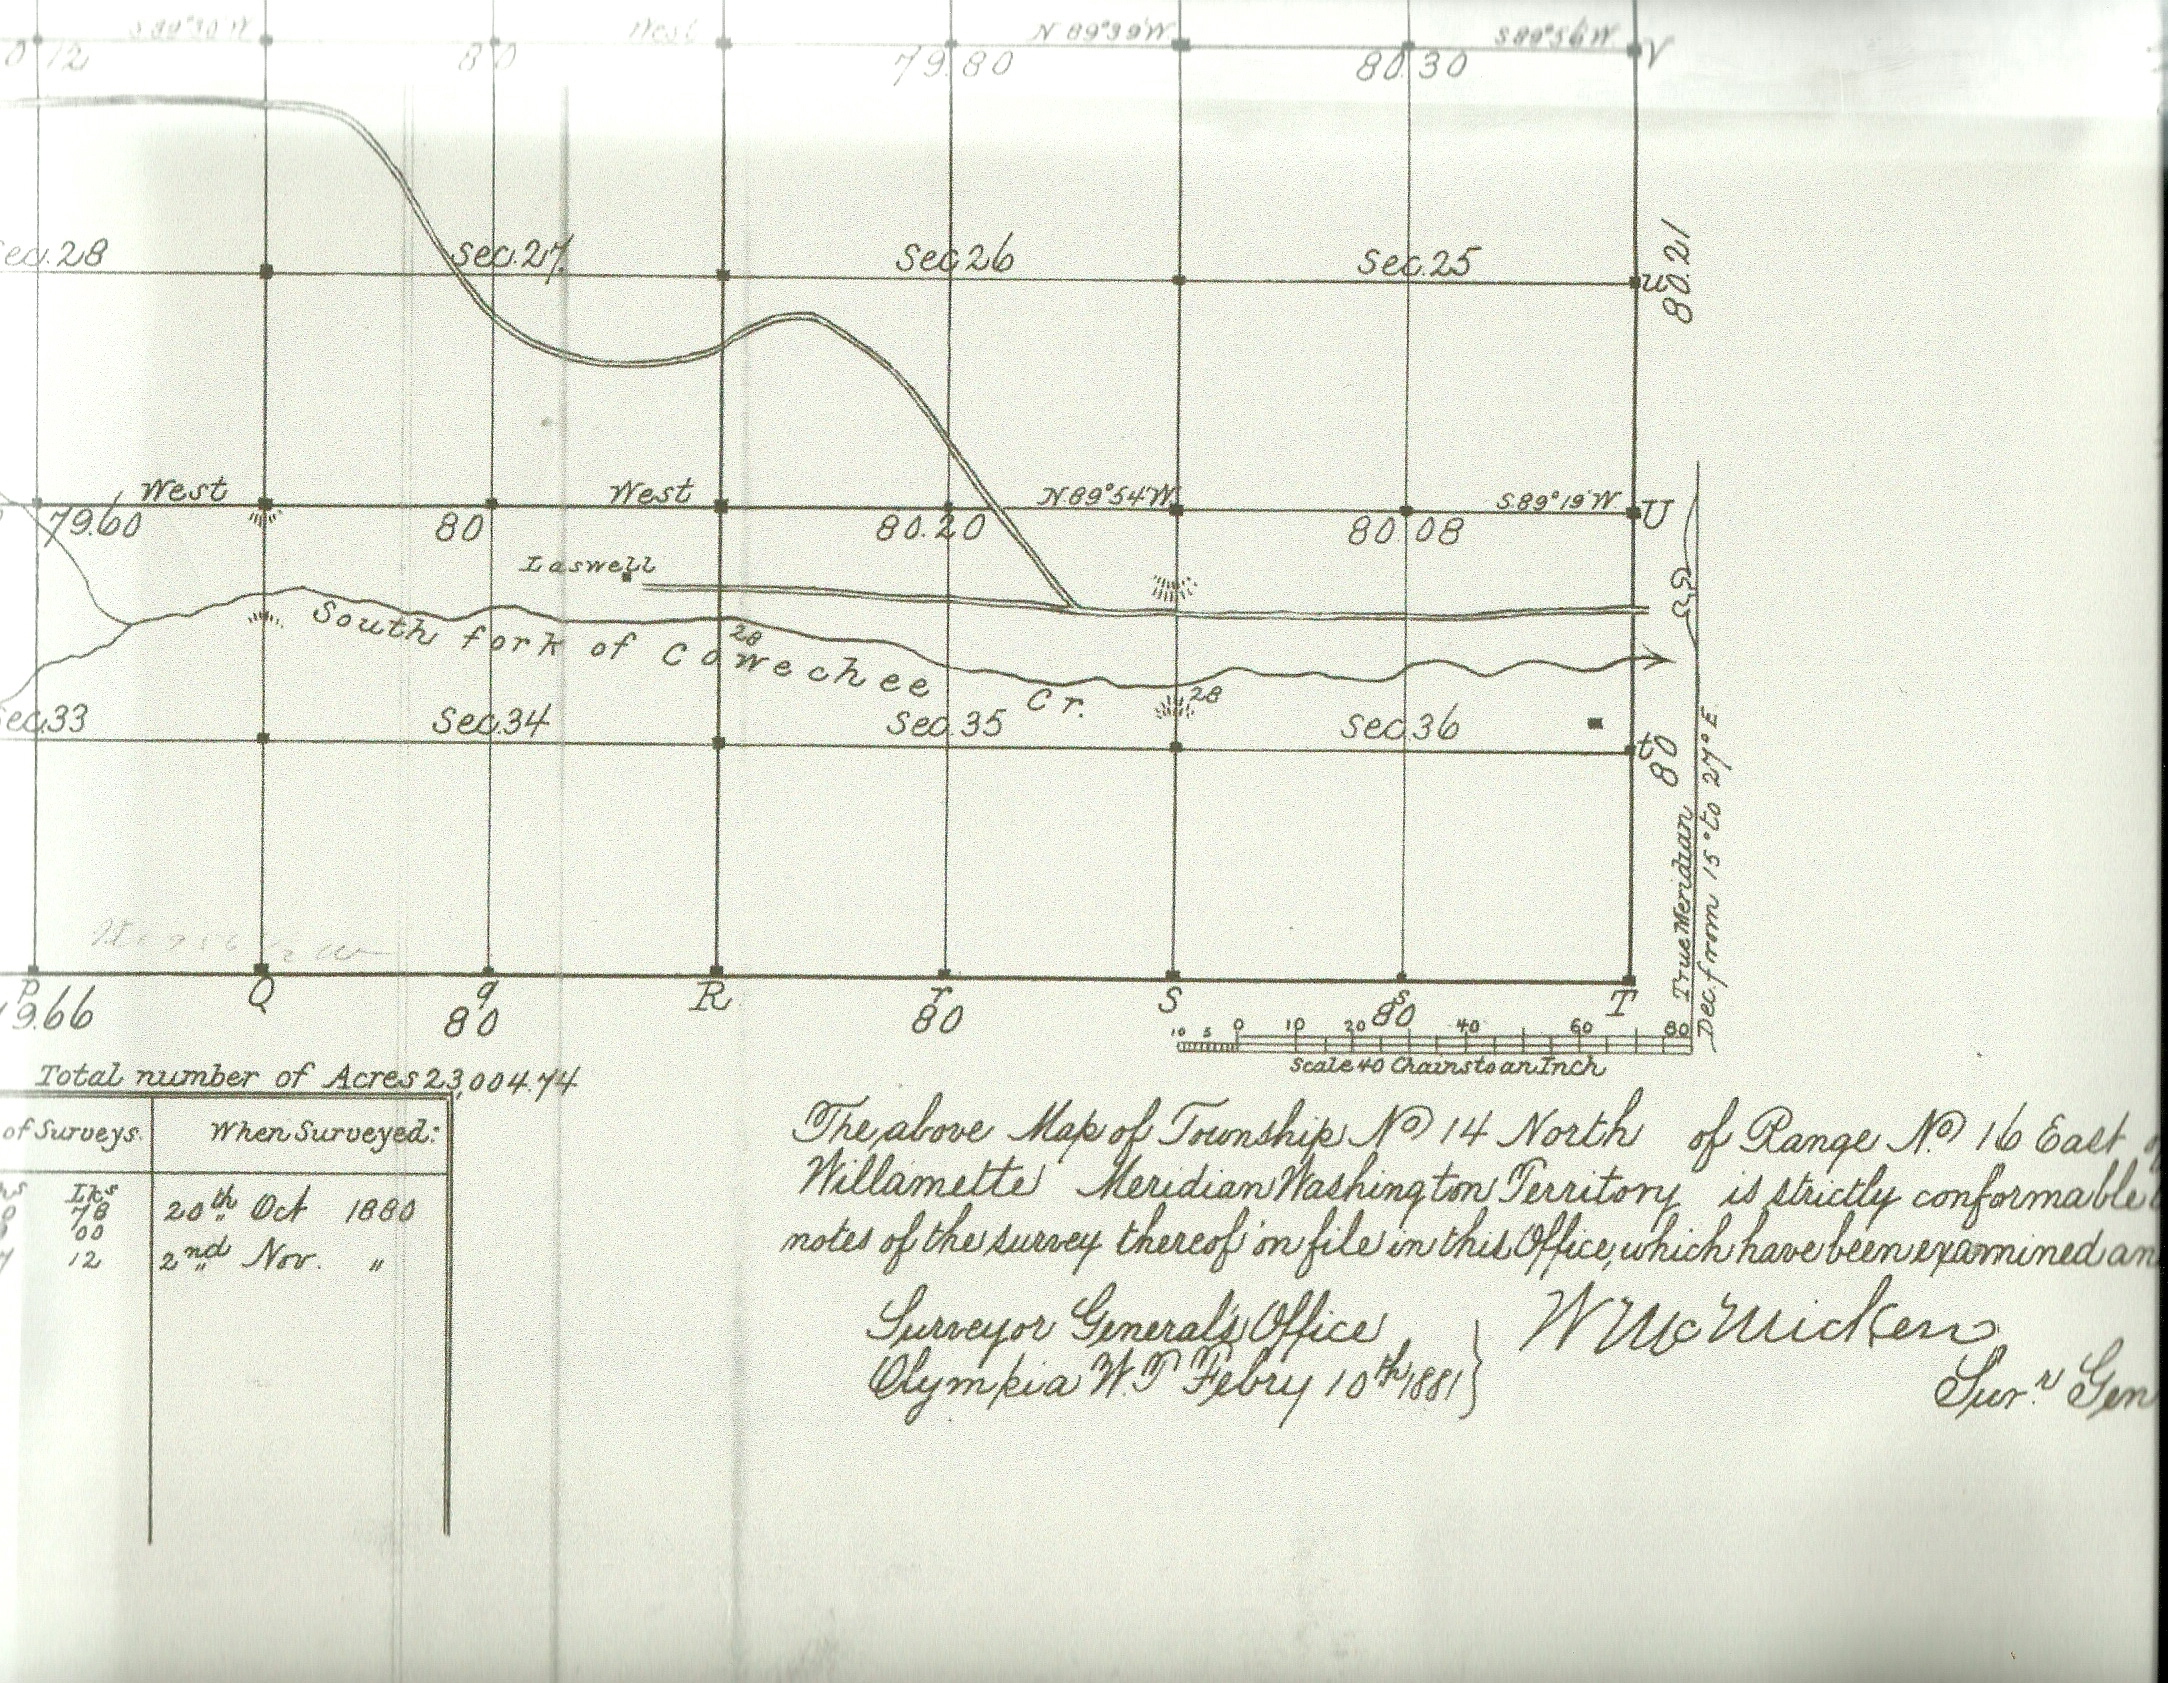 S 89° 30' W West N 89° 39' W S 89° 56' W
12 80 79.80 80.30 V
Sec. 28 Sec. 27 Sec. 26 Sec. 25 u 80.21
West West N 89° 54' W S. 89° 19' W U
79.60 80 80.20 80.08
Laswell
South fork of Cowechee Cr.
28
28
Sec. 33 Sec. 34 Sec. 35 Sec. 36 t 80
True Meridian
Dec. from 15° to 27° E
p Q q R r S s T
9.66 80 80 80
10 5 0 10 20 40 60 80
Scale 40 Chains to an Inch
Total number of Acres 23,004.74
of Surveys. When Surveyed:
Lks
78 20th Oct 1880
00
12 2nd Nov. "
The above Map of Township No 14 North of Range No. 16 East
Willamette Meridian Washington Territory is strictly conformable
notes of the survey thereof on file in this Office, which have been examined an
Surveyor General's Office
Olympia W.T Febry 10th 1881 }
W McMicken
Surr Gen